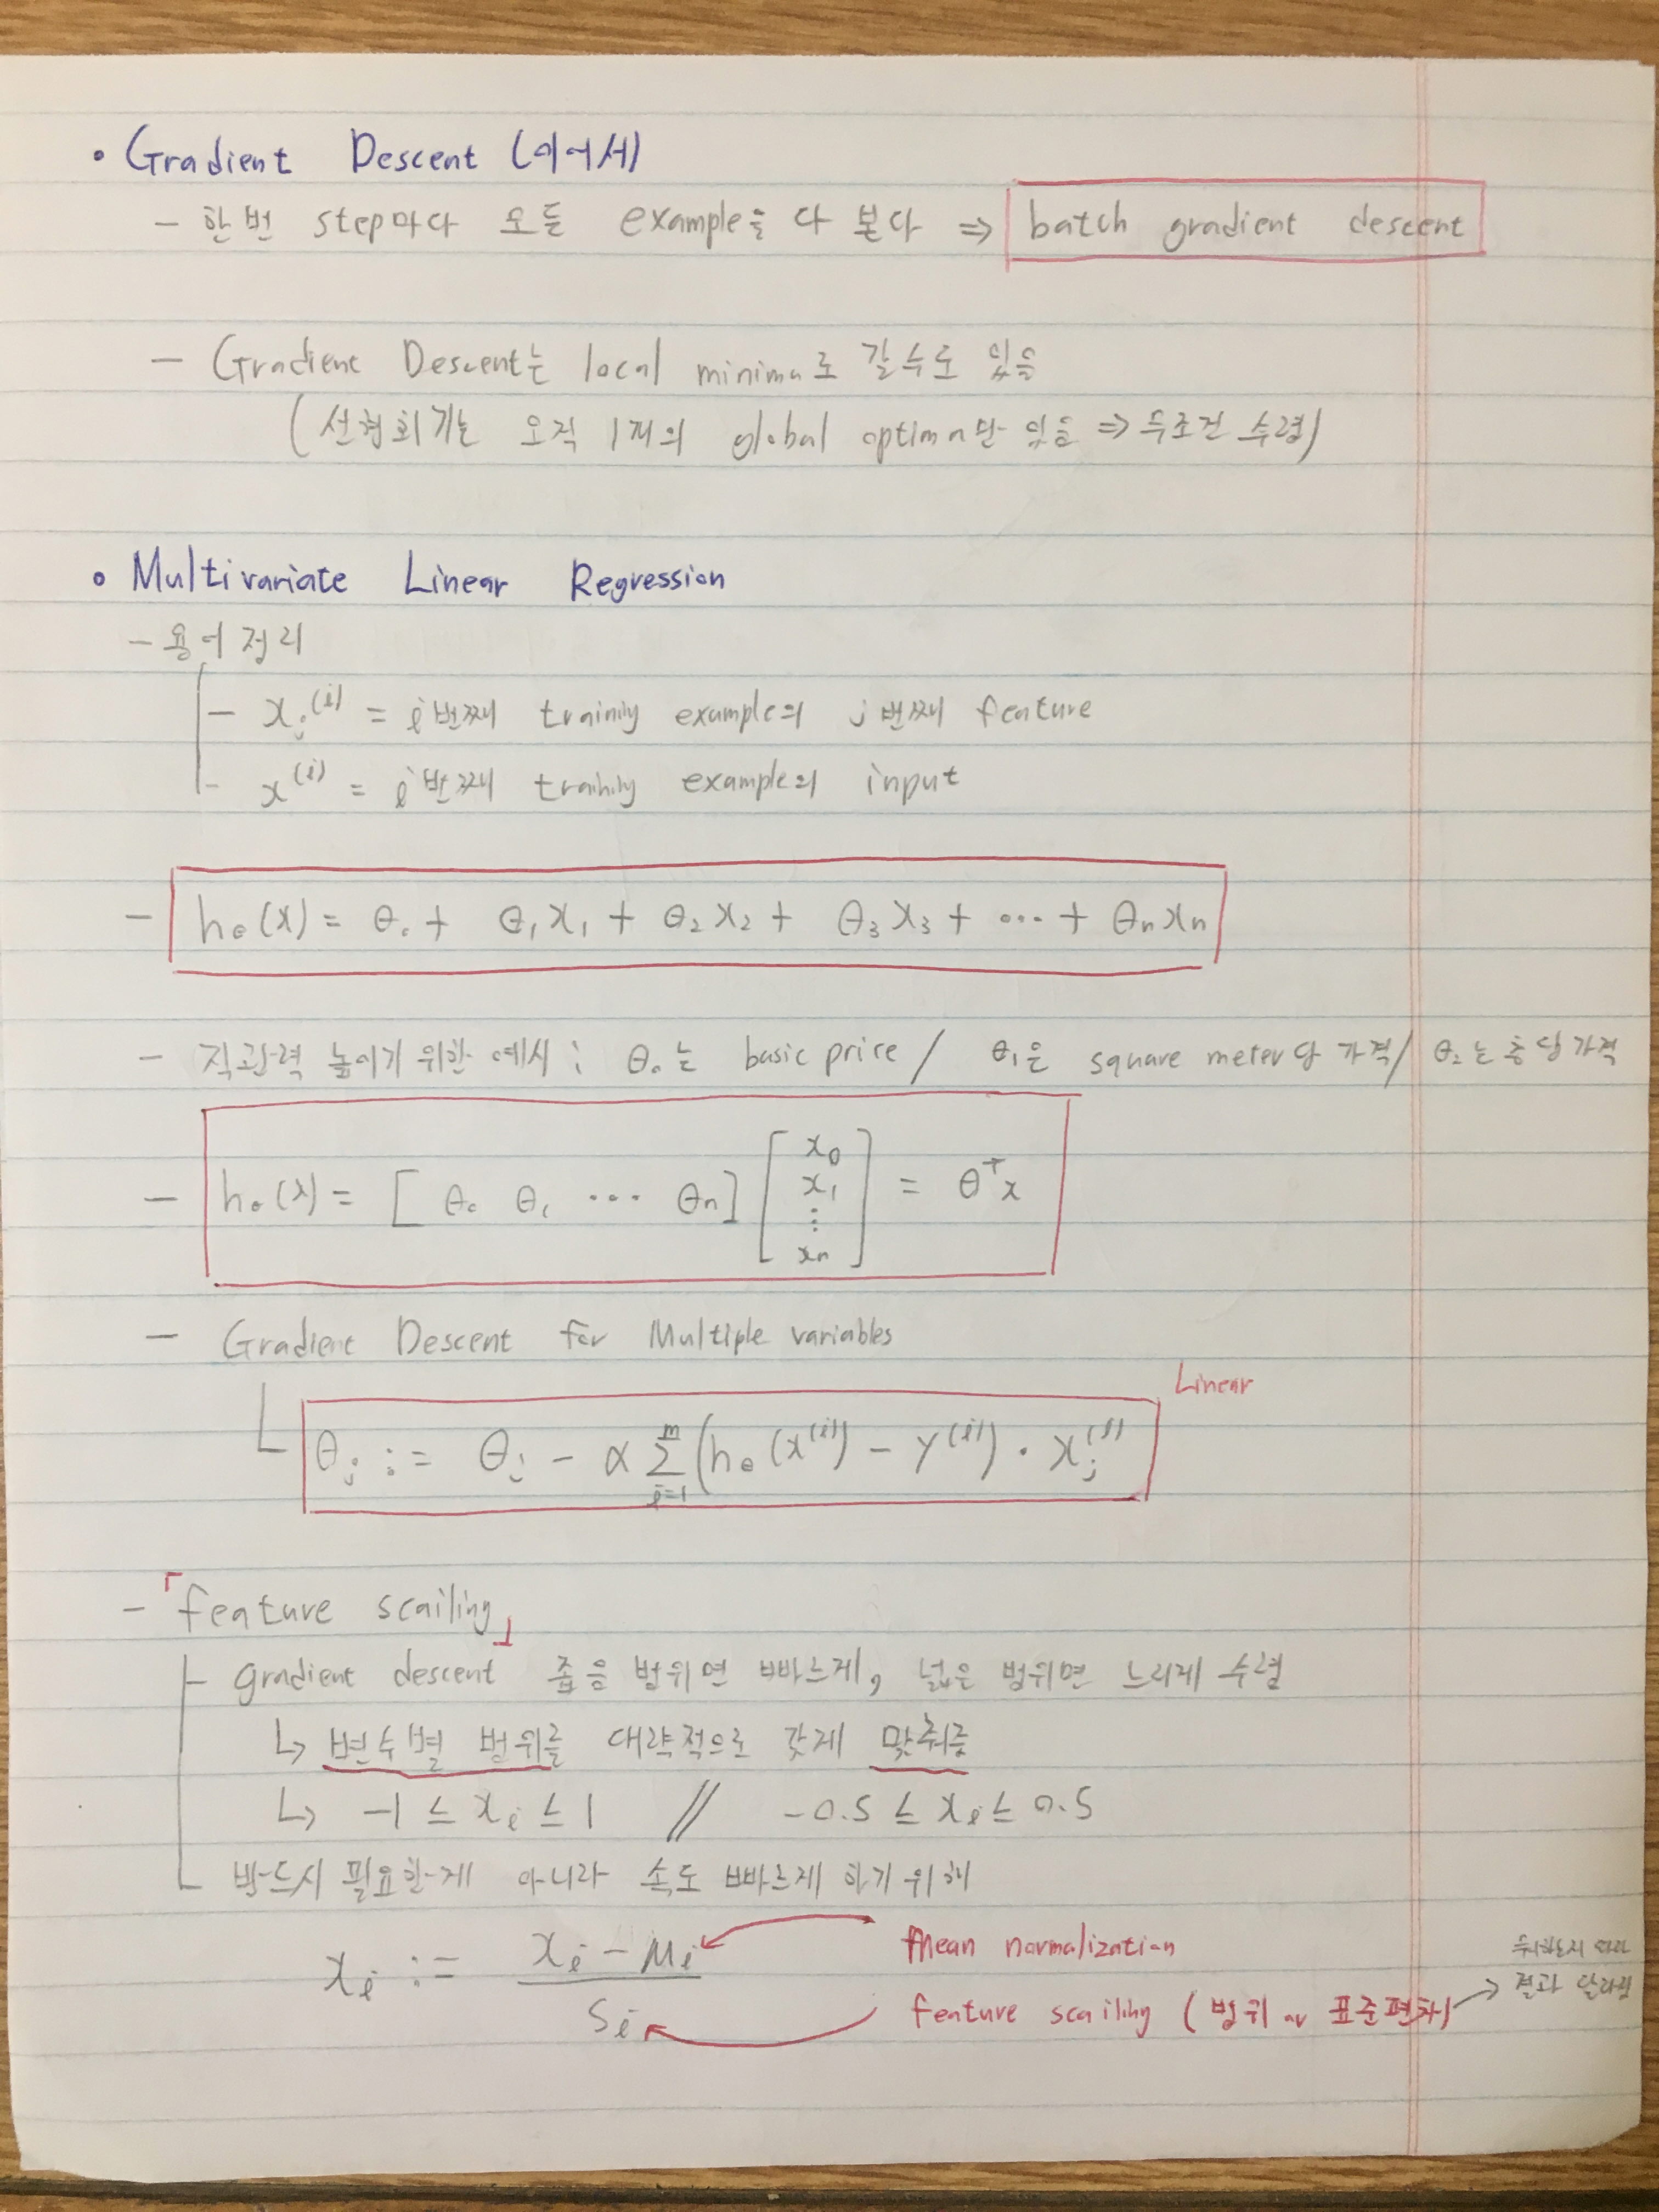 • Gradient Descent (이어서)
- 한번 step마다 모든 example을 다 본다 ⇒ batch gradient descent
- Gradient Descent는 local minima로 갈수도 있음
(선형회귀는 오직 1개의 global optima만 있음 ⇒ 무조건 수렴)
• Multivariate Linear Regression
- 용어정리
- xⱼ⁽ⁱ⁾ = i번째 training example의 j번째 feature
- x⁽ⁱ⁾ = i번째 training example의 input
- hθ(x) = θ₀ + θ₁x₁ + θ₂x₂ + θ₃x₃ + ⋯ + θₙxₙ
- 직관력 높이기 위한 예시 : θ₀는 basic price / θ₁은 square meter당 가격 / θ₂는 층당 가격
- hθ(x) = [θ₀ θ₁ ⋯ θₙ] [x₀ x₁ ⋮ xₙ] = θᵀx
- Gradient Descent for Multiple variables
Linear
θⱼ := θⱼ - α Σᵢ₌₁ᵐ (hθ(x⁽ⁱ⁾) - y⁽ⁱ⁾) · xⱼ⁽ⁱ⁾
- 「feature scailing」
- gradient descent 좁음 범위면 빠르게, 넓은 범위면 느리게 수렴
↳ 변수별 범위를 대략적으로 갖게 맞춰줌
↳ -1 ≤ xᵢ ≤ 1 // -0.5 ≤ xᵢ ≤ 0.5
반드시 필요한게 아니라 속도 빠르게 하기 위해
xᵢ := (xᵢ - μᵢ) / sᵢ
mean normalization
feature scailing (범위 or 표준편차) → 결과 달라짐